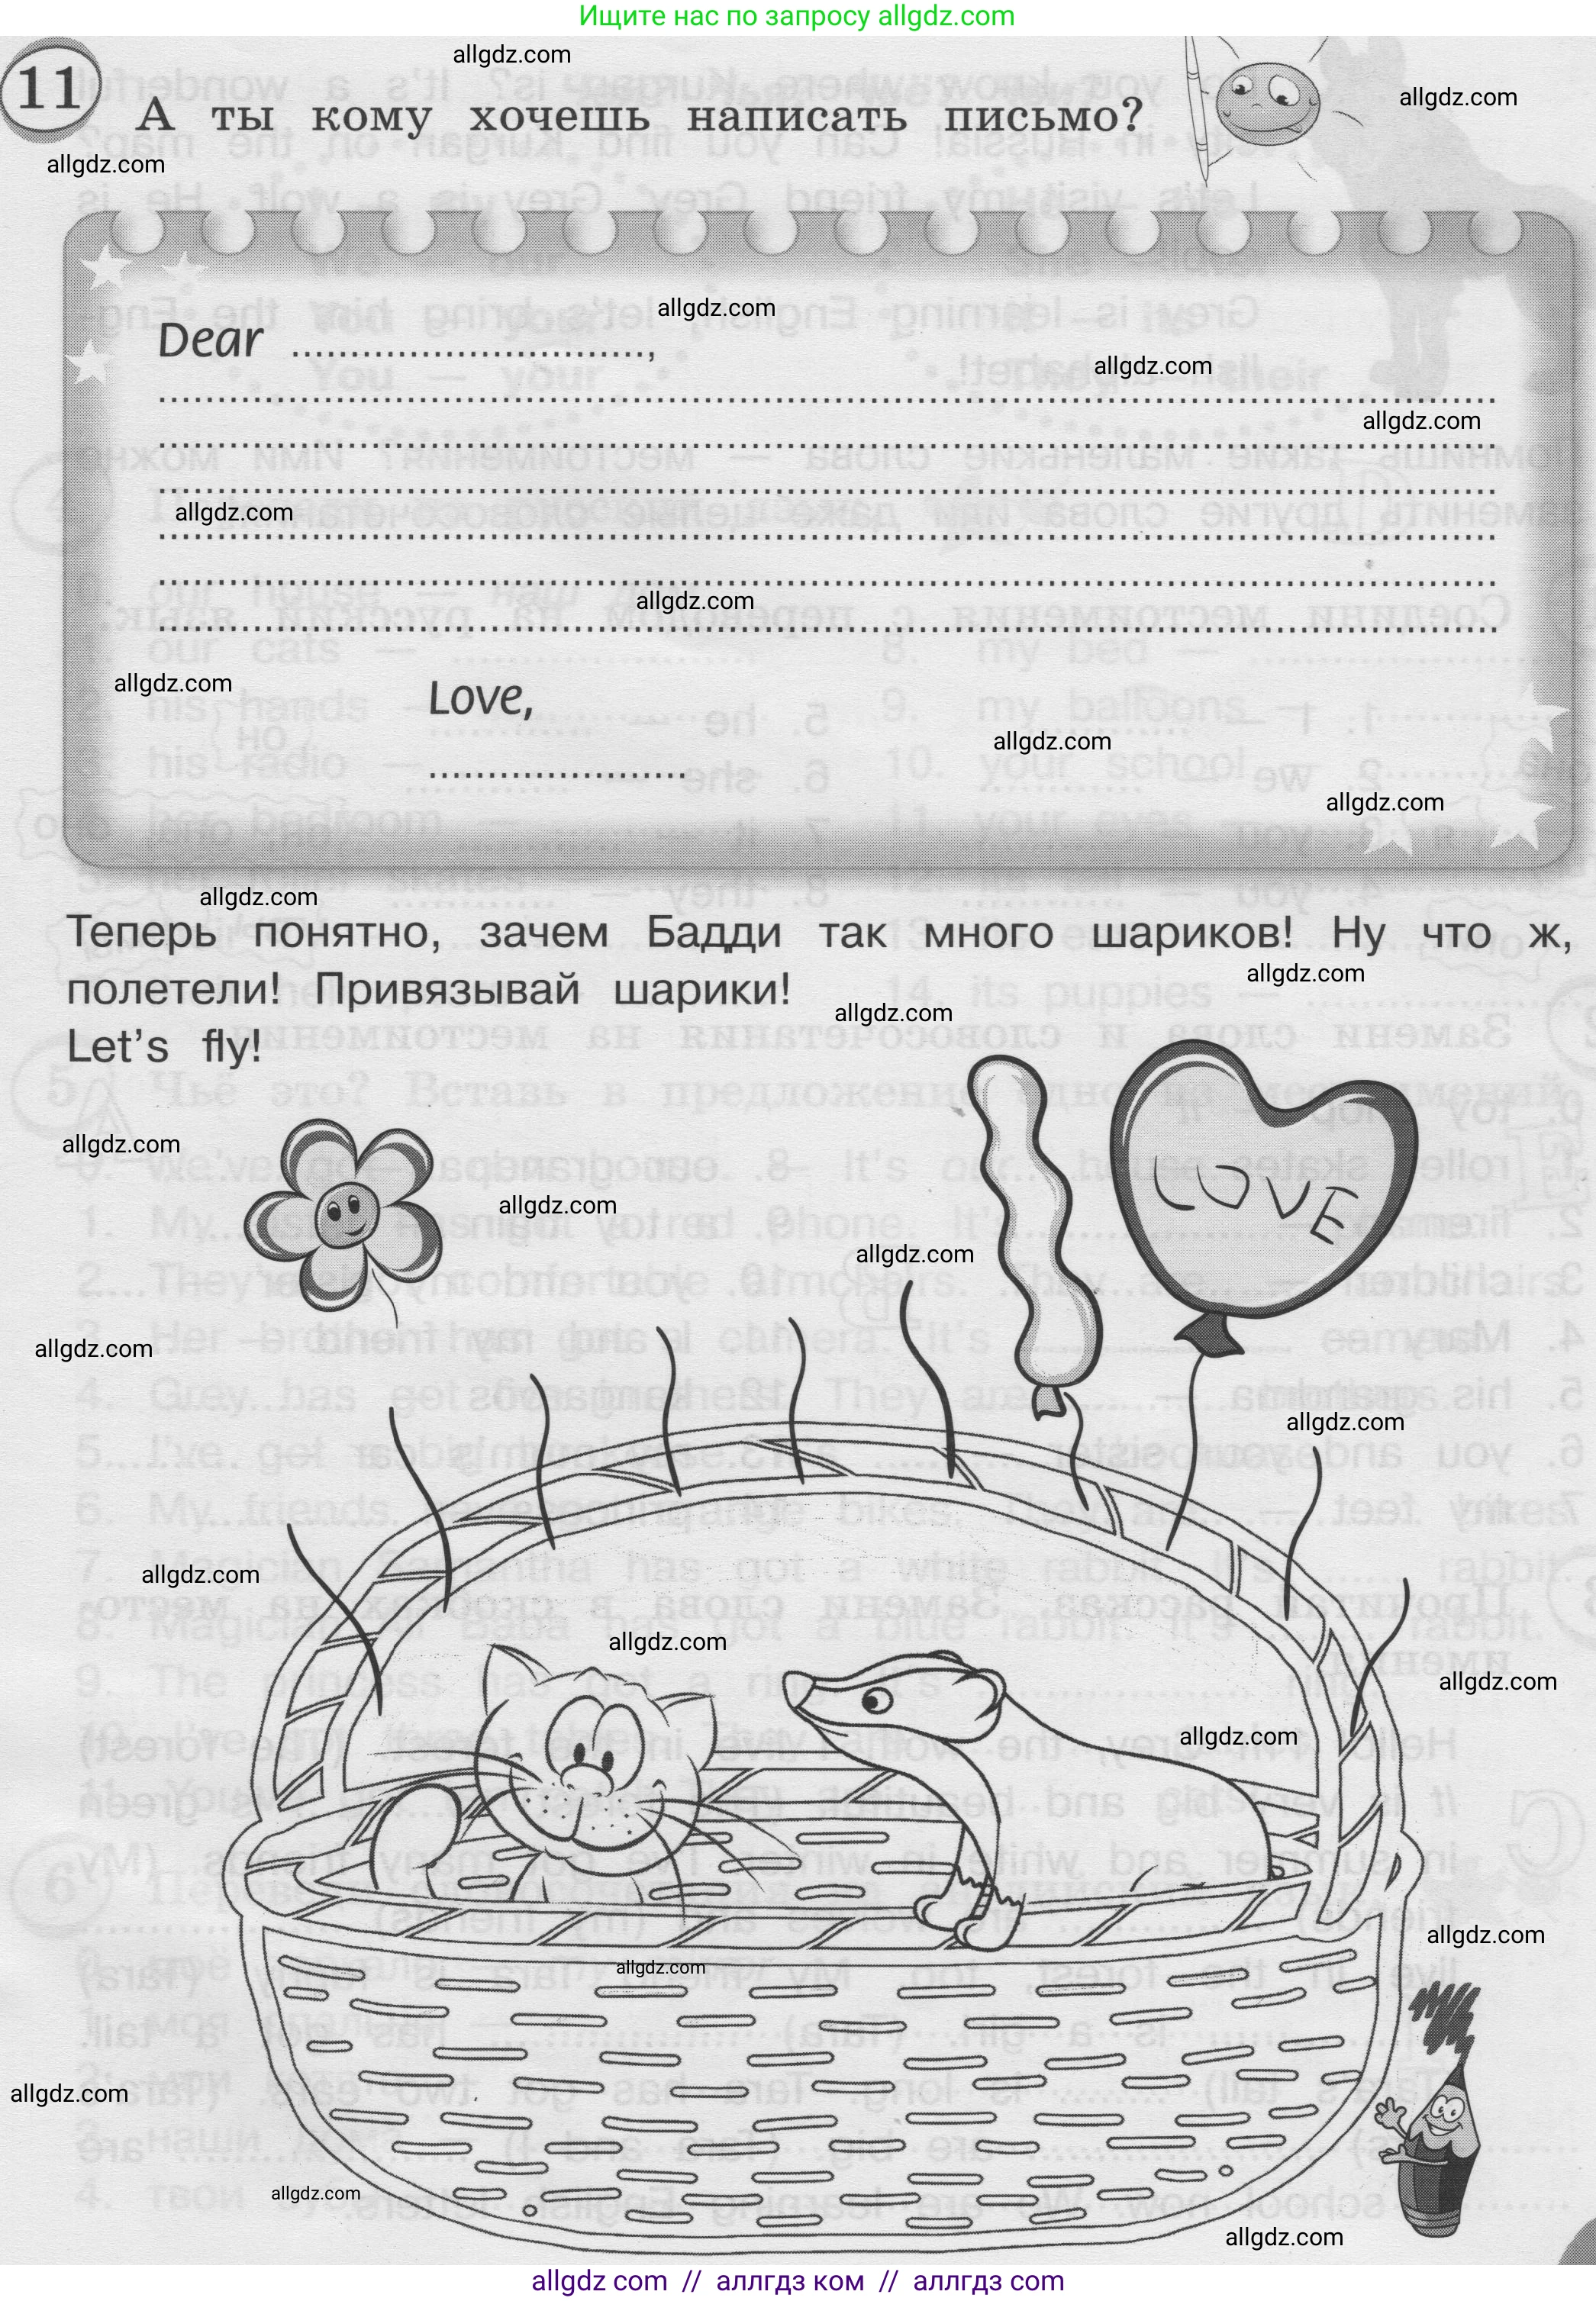 Ищите нас по запросу allgdz.com
allgdz.com
11 А ты кому хочешь написать письмо?
allgdz.com
allgdz.com
allgdz.com
Dear ..............................,
allgdz.com
allgdz.com
allgdz.com
allgdz.com
allgdz.com
Love,
allgdz.com
allgdz.com
allgdz.com
Теперь понятно, зачем Бадди так много шариков! Ну что ж,
allgdz.com
полетели! Привязывай шарики!
allgdz.com
Let's fly!
allgdz.com
LOVE
allgdz.com
allgdz.com
allgdz.com
allgdz.com
allgdz.com
allgdz.com
allgdz.com
allgdz.com
allgdz.com
allgdz.com
allgdz.com
allgdz.com
allgdz.com
allgdz com // аллгдз ком // аллгдз com